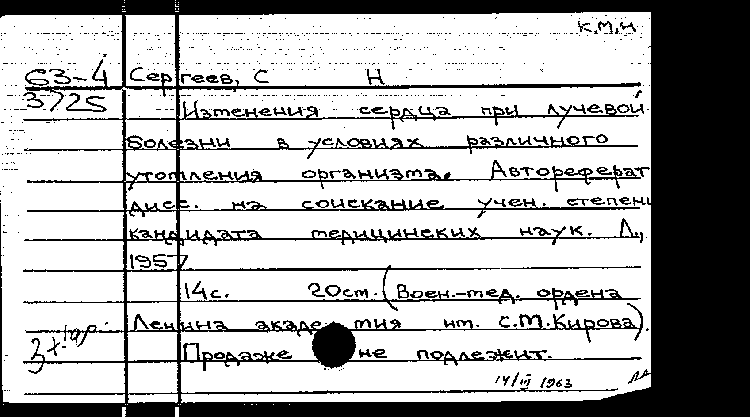 К.М.Н
63-4 Сергеев, С Н
3725 Изменения сердца при лучевой
болезни в условиях различного
утомления организма. Автореферат
дисс. на соискание учен. степени
кандидата медицинских наук. Л.,
1957
14с. 20см. (Воен.-мед. ордена
Ленина академия им. С.М.Кирова).
Продаже не подлежит.
14/III 1963